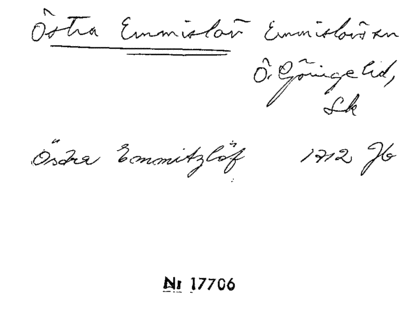 Östra Emmislöv Emmislövs sn
Ö. Göinge hd,
Sk
Östra Emmitzlöf 1712 Jb
Nr 17706